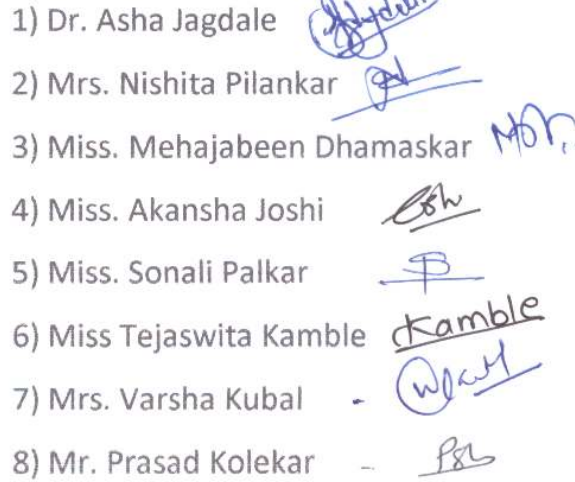 1) Dr. Asha Jagdale
2) Mrs. Nishita Pilankar
3) Miss. Mehajabeen Dhamaskar
4) Miss. Akansha Joshi
5) Miss. Sonali Palkar
6) Miss Tejaswita Kamble Kamble
7) Mrs. Varsha Kubal -
8) Mr. Prasad Kolekar -